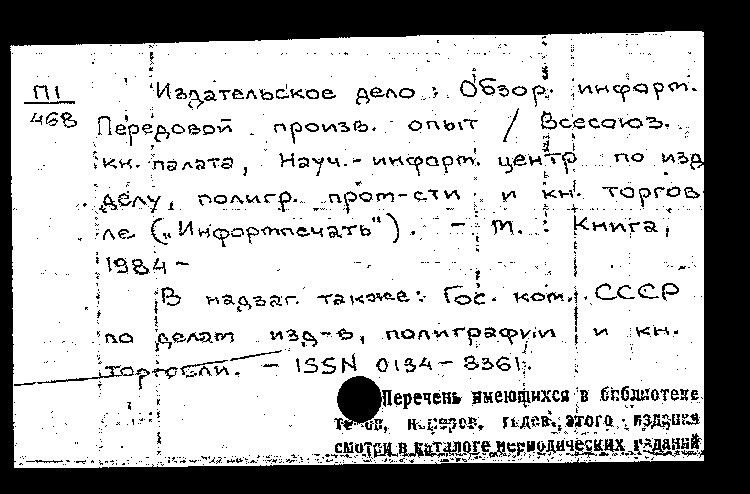 П1
468
Издательское дело: Обзор. информ.
Передовой произв. опыт / Всесоюз.
кн. палата, Науч.-информ. центр по изд
делу, полигр. пром-сти и кн. торгов
ле („Информпечать"). - М.: Книга,
1984 -
В надзаг. также: Гос. ком. СССР
по делам изд-в, полиграфии и кн.
торговли. - ISSN 0134-8361.
Перечень имеющихся в библиотеке
этого издания
смотри в каталоге периодических изданий